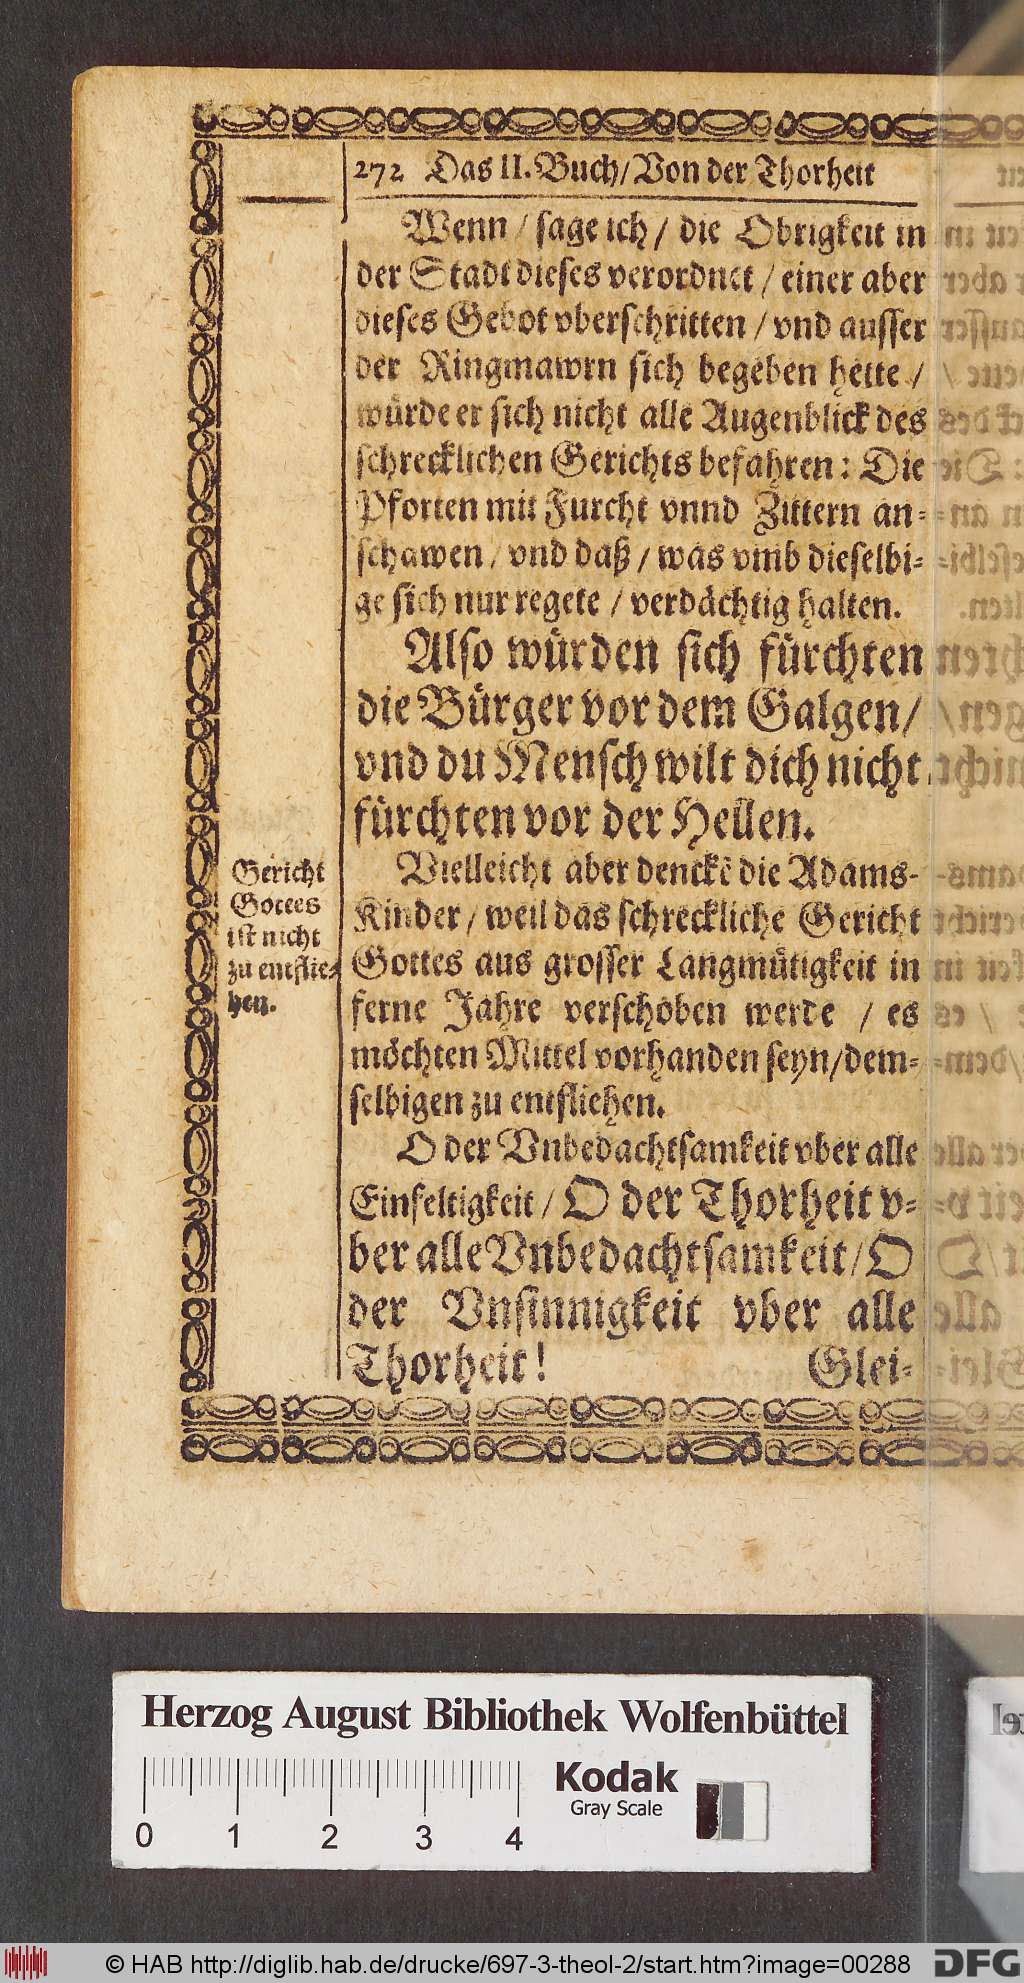 272 Das II. Buch/Von der Thorheit
Wenn / sage ich / die Obrigkeit in
der Stadt dieses verordnet / einer aber
dieses Gebot vberschritten / vnd ausser
der Ringmawrn sich begeben hette /
würde er sich nicht alle Augenblick des
schrecklichen Gerichts befahren: Die
Pforten mit Furcht vnnd Zittern an-
schawen / vnd daß / was vmb dieselbi-
ge sich nur regete / verdächtig halten.
Also würden sich fürchten
die Bürger vor dem Galgen/
vnd du Mensch wilt dich nicht
fürchten vor der Hellen.
Gericht
Gottes
ist nicht
zu entflie-
hen.
Vielleicht aber denckē die Adams-
Kinder / weil das schreckliche Gericht
Gottes aus grosser Langmütigkeit in
ferne Jahre verschoben werde / es
möchten Mittel vorhanden seyn/dem-
selbigen zu entfliehen.
O der Vnbedachtsamkeit vber alle
Einfeltigkeit / O der Thorheit v-
ber alle Vnbedachtsamkeit/O
der Vnsinnigkeit vber alle
Thorheit! Glei-
Herzog August Bibliothek Wolfenbüttel
Kodak
Gray Scale
0 1 2 3 4
© HAB http://diglib.hab.de/drucke/697-3-theol-2/start.htm?image=00288 DFG